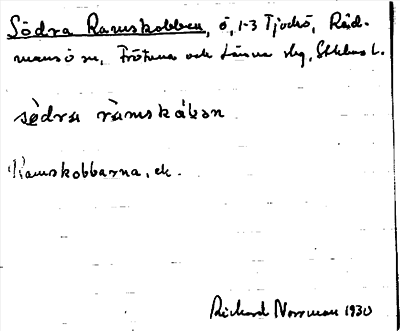 Södra Ramskobben, ö, 1-3 Tjockö, Råd-
mansö sn, Frötuna och Länna skg, Sthlms l.
sèdra ràmskåban
Ramskobbarna, ek.
Rickard Norrman 1930